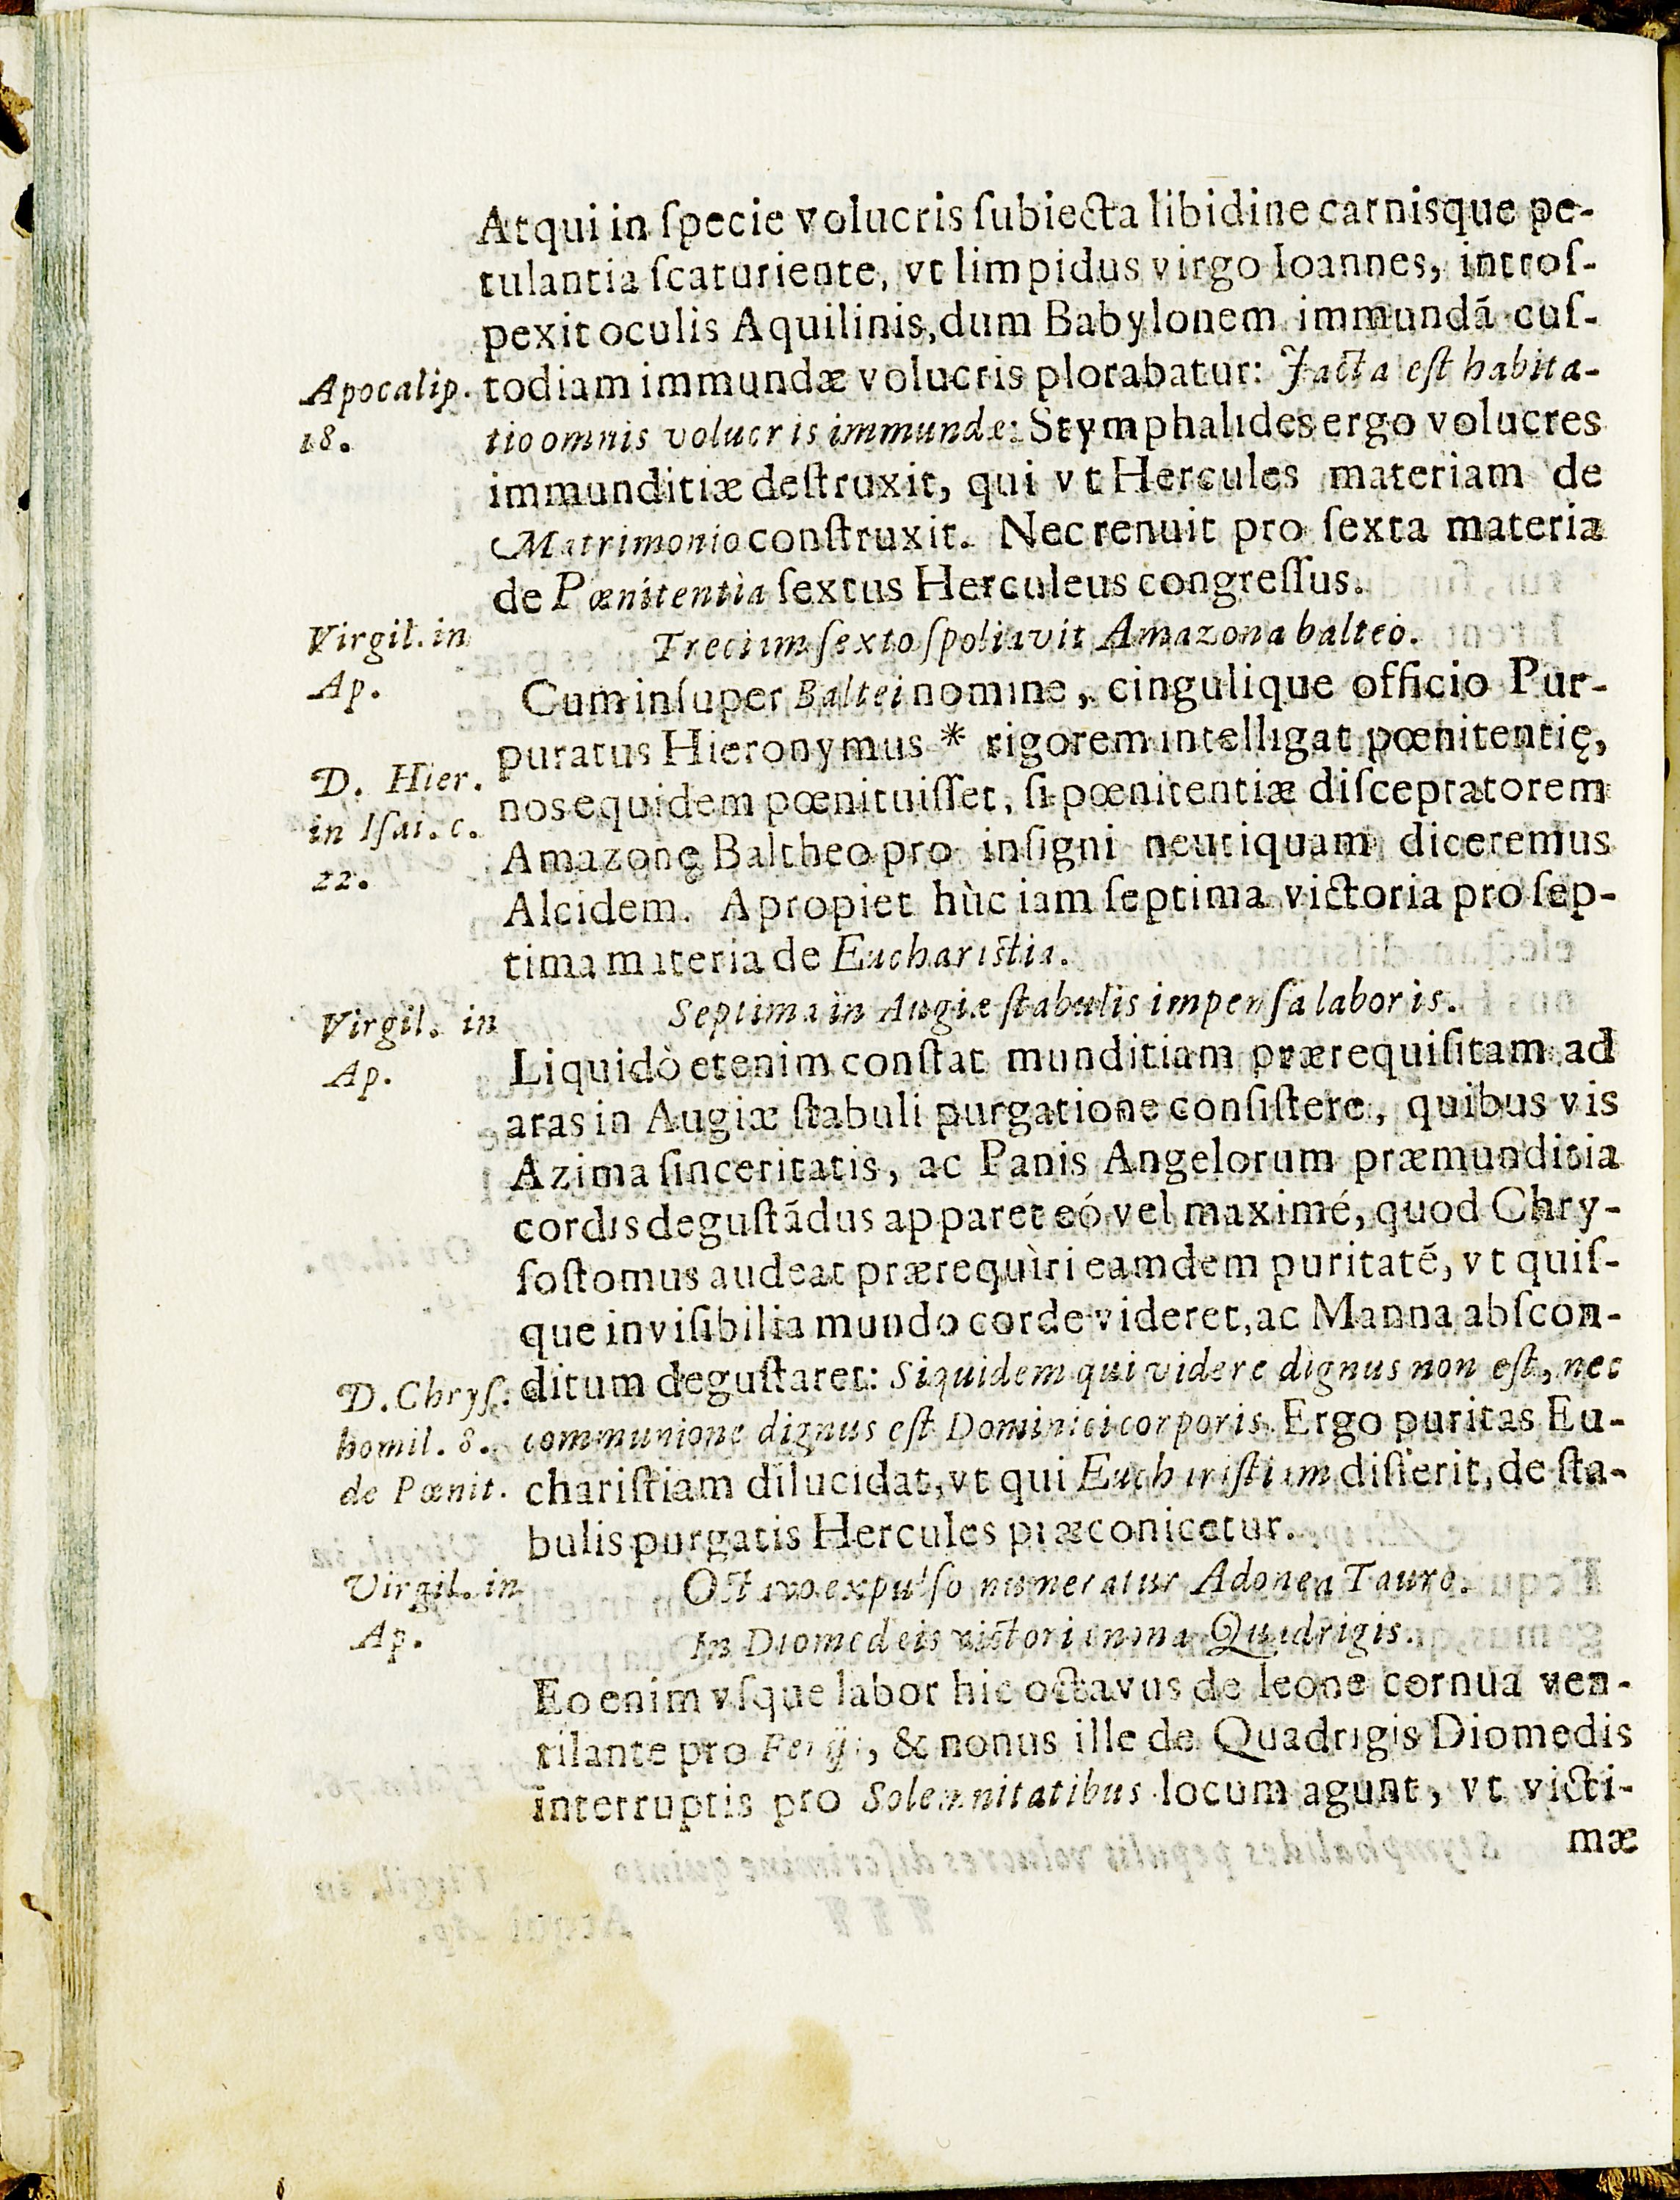 Atqui in ſpecie volucris ſubiecta libidine carnisque pe-
tulantia ſcaturiente, vt limpidus virgo Ioannes, introſ-
pexit oculis Aquilinis, dum Babylonem immundã cuſ-
Apocalip.
18.
todiam immundæ volucris plorabatur: Facta eſt habita-
tio omnis volucris immundæ: Stymphalides ergo volucres
immunditiæ deſtruxit, qui vt Hercules materiam de
Matrimonio conſtruxit. Nec renuit pro ſexta materia
de Pœnitentìa ſextus Herculeus congreſſus.
Virgil. in
Ap.
Treciam ſexto ſpoliavit Amazona balteò.
Cum inſuper Baltei nomine, cingulique officio Pur-
puratus Hieronymus * rigorem intelligat pœnitentię,
D. Hier.
in Iſai. c.
22.
nos equidem pœnituiſſet, ſi pœnitentiæ diſceptatorem
Amazonę Baltheo pro inſigni neutiquam diceremus
Alcidem. Apropiet hùc iam ſeptima victoria pro ſep-
tima materia de Euchariſtia.
Virgil. in
Ap.
Septima in Augiæ ſtabulis impenſa laboris.
Liquidò etenim conſtat munditiam prærequiſitam ad
aras in Augiæ ſtabuli purgatione conſiſtere, quibus vis
Azima ſinceritatis, ac Panis Angelorum præmunditia
cordis deguſtãdus apparet eó vel maximé, quod Chry-
ſoſtomus audeat prærequìri eamdem puritatẽ, vt quiſ-
que inviſibilia mundo corde videret, ac Manna abſcon-
D. Chryſ.
homil. 8.
de Pœnit.
ditum deguſtaret: Siquidem qui videre dignus non eſt, nec
communione dignus eſt Dominici corporis. Ergo puritas Eu-
chariſtiam dilucidat, vt qui Euchariſtiam diſierit, de ſta-
bulis purgatis Hercules præconicetur.
Virgil. in
Ap.
Octavo expulſo numeratur Adonea Tauro.
In Diomedeis victoria nona Quadrigis.
Eo enim vſque labor hic octavus de leone cornua ven-
tilante pro Ferijs, & nonus ille de Quadrigis Diomedis
interruptis pro Solemnitatibus locum agunt, vt victi-
mæ